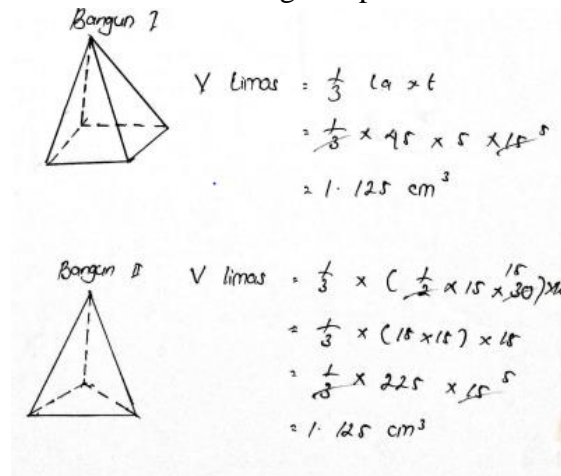 Bangun I
V Limas = 1/3 la x t
= 1/3 x 45 x 5 x 15 5
= 1.125 cm³
Bangun II
V limas = 1/3 x ( 1/2 x 15 x 30 15 ) x
= 1/3 x (15 x 15) x 15
= 1/3 x 225 x 15 5
= 1.125 cm³